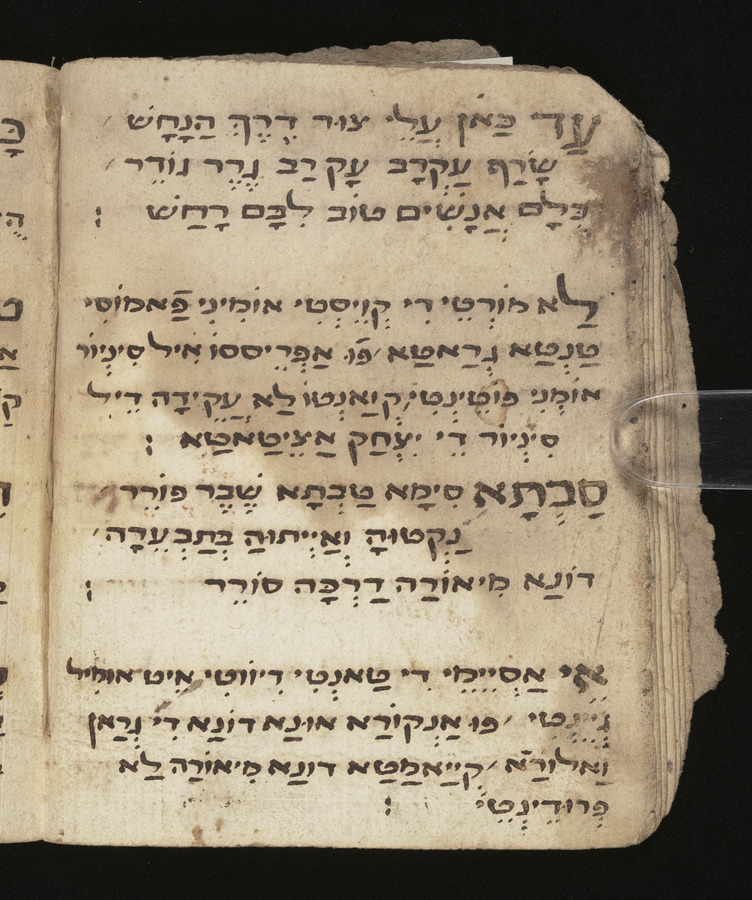 עַד כַּאן עֲלֵי צוּר דֶרֶךְ הַנָחָשׁ
שָׂרַף עַקְרָב עָקְרַב גֶרֶר נוֹדֵר
כֻּלָם אֲנָשִׁים טוֹב לִבָּם רָחַשׁ :
לַא מוֹרְטֵי דִי קְוִיסְטִי אוֹמִינִי פַֿאמוֹסִי
טַנְטַא גְרַאטַא פֿוּ אַפְרִיסְסוֹ אִיל סִינְיוֹר
אוֹמְנִי פּוֹטֵינְטִי קְוַאנְטוֹ לַא עֲקֵידָה דֵיל
סִינְיוֹר דִי יִצְחַק אַצֵיטַאטַא :
סַבְתָא סִימָא טַבְתָא שֶׁבֶר פּוֹרֵר
נַקְטוּהָ וְאַיְיתוּהַ בְּתַבְעֵרָה
דוֹנַא מֵיאוֹרַה דַרְכָּהּ סוֹרֵר :
אֵי אַסְיֵימֵי דִי טַאנְטִי דִיוֹוטִי אֵיט אוּמִיל
גֵ׳ינְטִי פוּ אַנְקוֹרַא אוּנַא דוֹנַא דִי גְרַאן
וַאלוֹרַא קְיַיאמַטַא דוֹנַא מֵיאוֹרַה לַא
פְּרוּדֵינְטֵי :